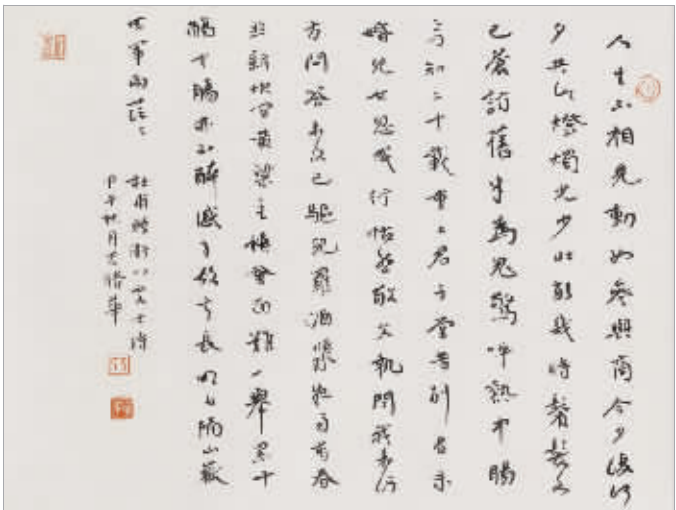 人生不相見動如參與商今夕復何
夕共此燈燭光少壯能幾時鬢髮各
已蒼訪舊半為鬼驚呼熱中腸
焉知二十載重上君子堂昔別君未
婚兒女忽成行怡然敬父執問我來何
方問答未及已驅兒羅酒漿夜雨剪春
韭新炊間黃粱主稱會面難一舉累十
觴十觴亦不醉感子故意長明日隔山嶽
世事兩茫〻
杜甫贈衛八處士詩
甲午 月 華